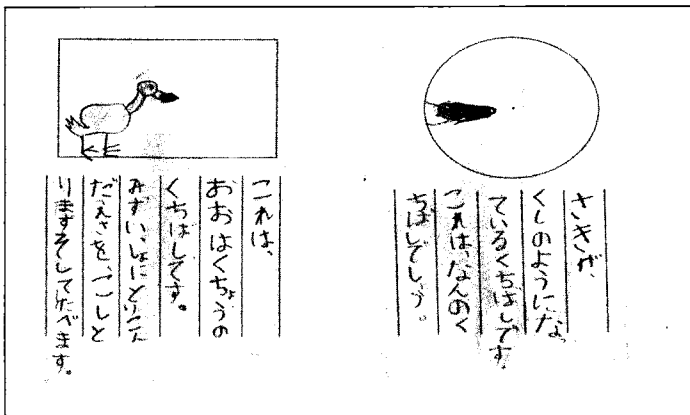 さきが、
くしのようになっ
ているくちばしです
これは、なんのく
ちばしでしょう。
これは、
おおはくちょうの
くちばしです。
みずいっしょにとりこん
だえさを、こしと
りますそしてたべます。